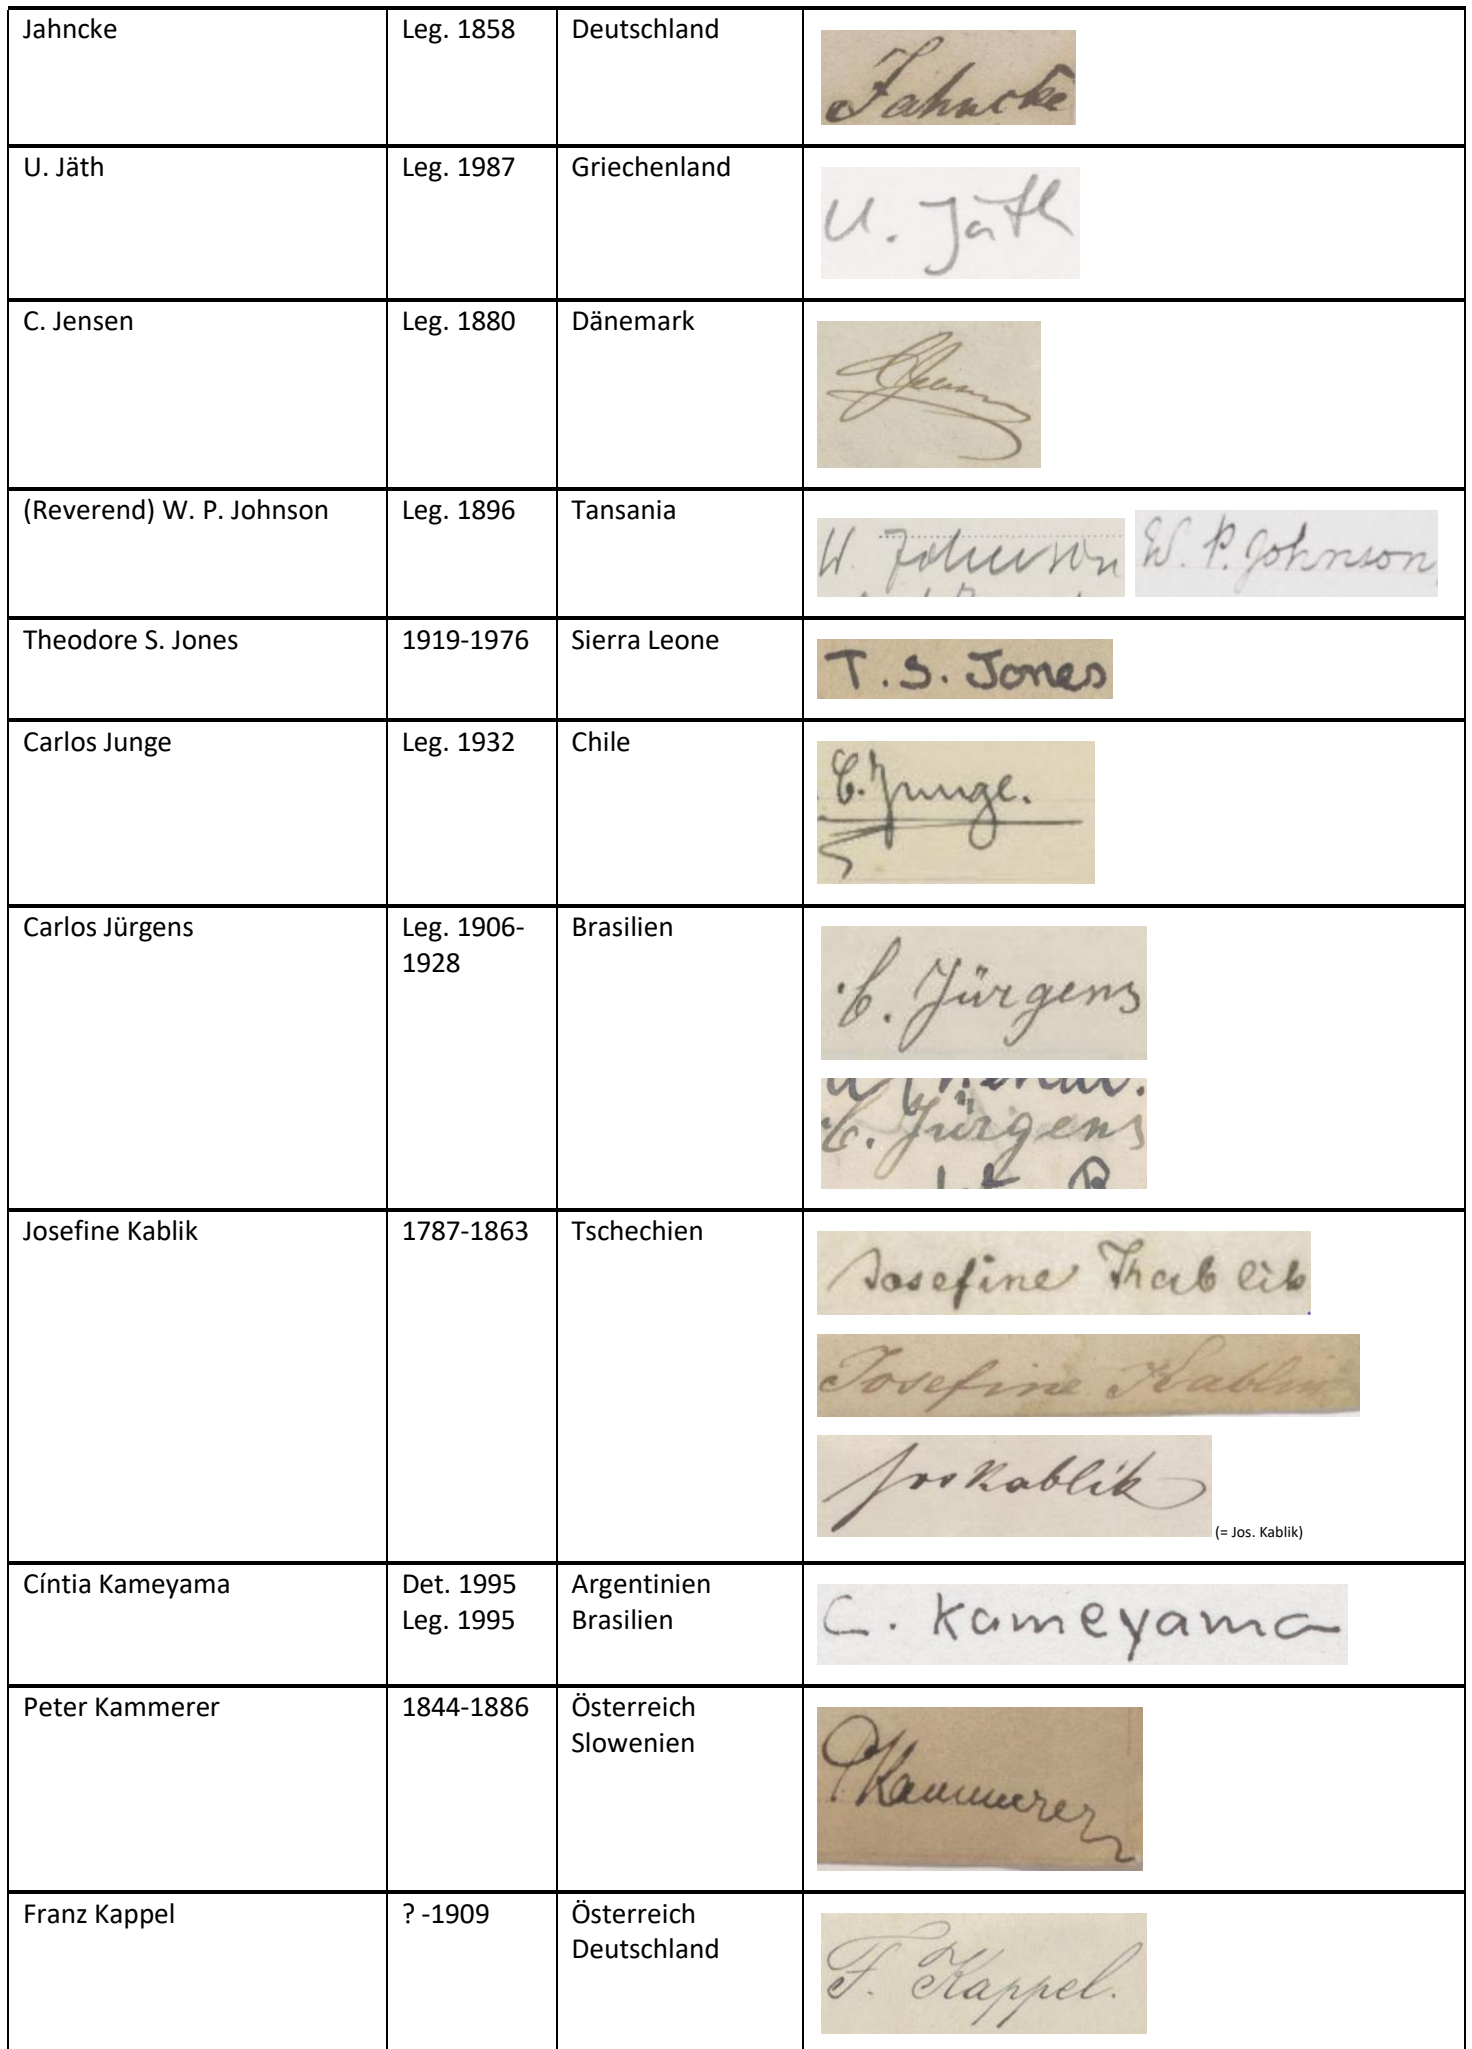 Jahncke Leg. 1858 Deutschland Jahncke
U. Jäth Leg. 1987 Griechenland U. Jäth
C. Jensen Leg. 1880 Dänemark
(Reverend) W. P. Johnson Leg. 1896 Tansania W. Johnson W. P. Johnson
Theodore S. Jones 1919-1976 Sierra Leone T. S. Jones
Carlos Junge Leg. 1932 Chile C. Junge.
Carlos Jürgens Leg. 1906- Brasilien C. Jürgens
1928
C. Jürgens
Josefine Kablik 1787-1863 Tschechien Josefine Kablik
Josefine Kablik
Jos Kablik (= Jos. Kablik)
Cíntia Kameyama Det. 1995 Argentinien C. Kameyama
Leg. 1995 Brasilien
Peter Kammerer 1844-1886 Österreich P Kammerer
Slowenien
Franz Kappel ? -1909 Österreich F. Kappel.
Deutschland